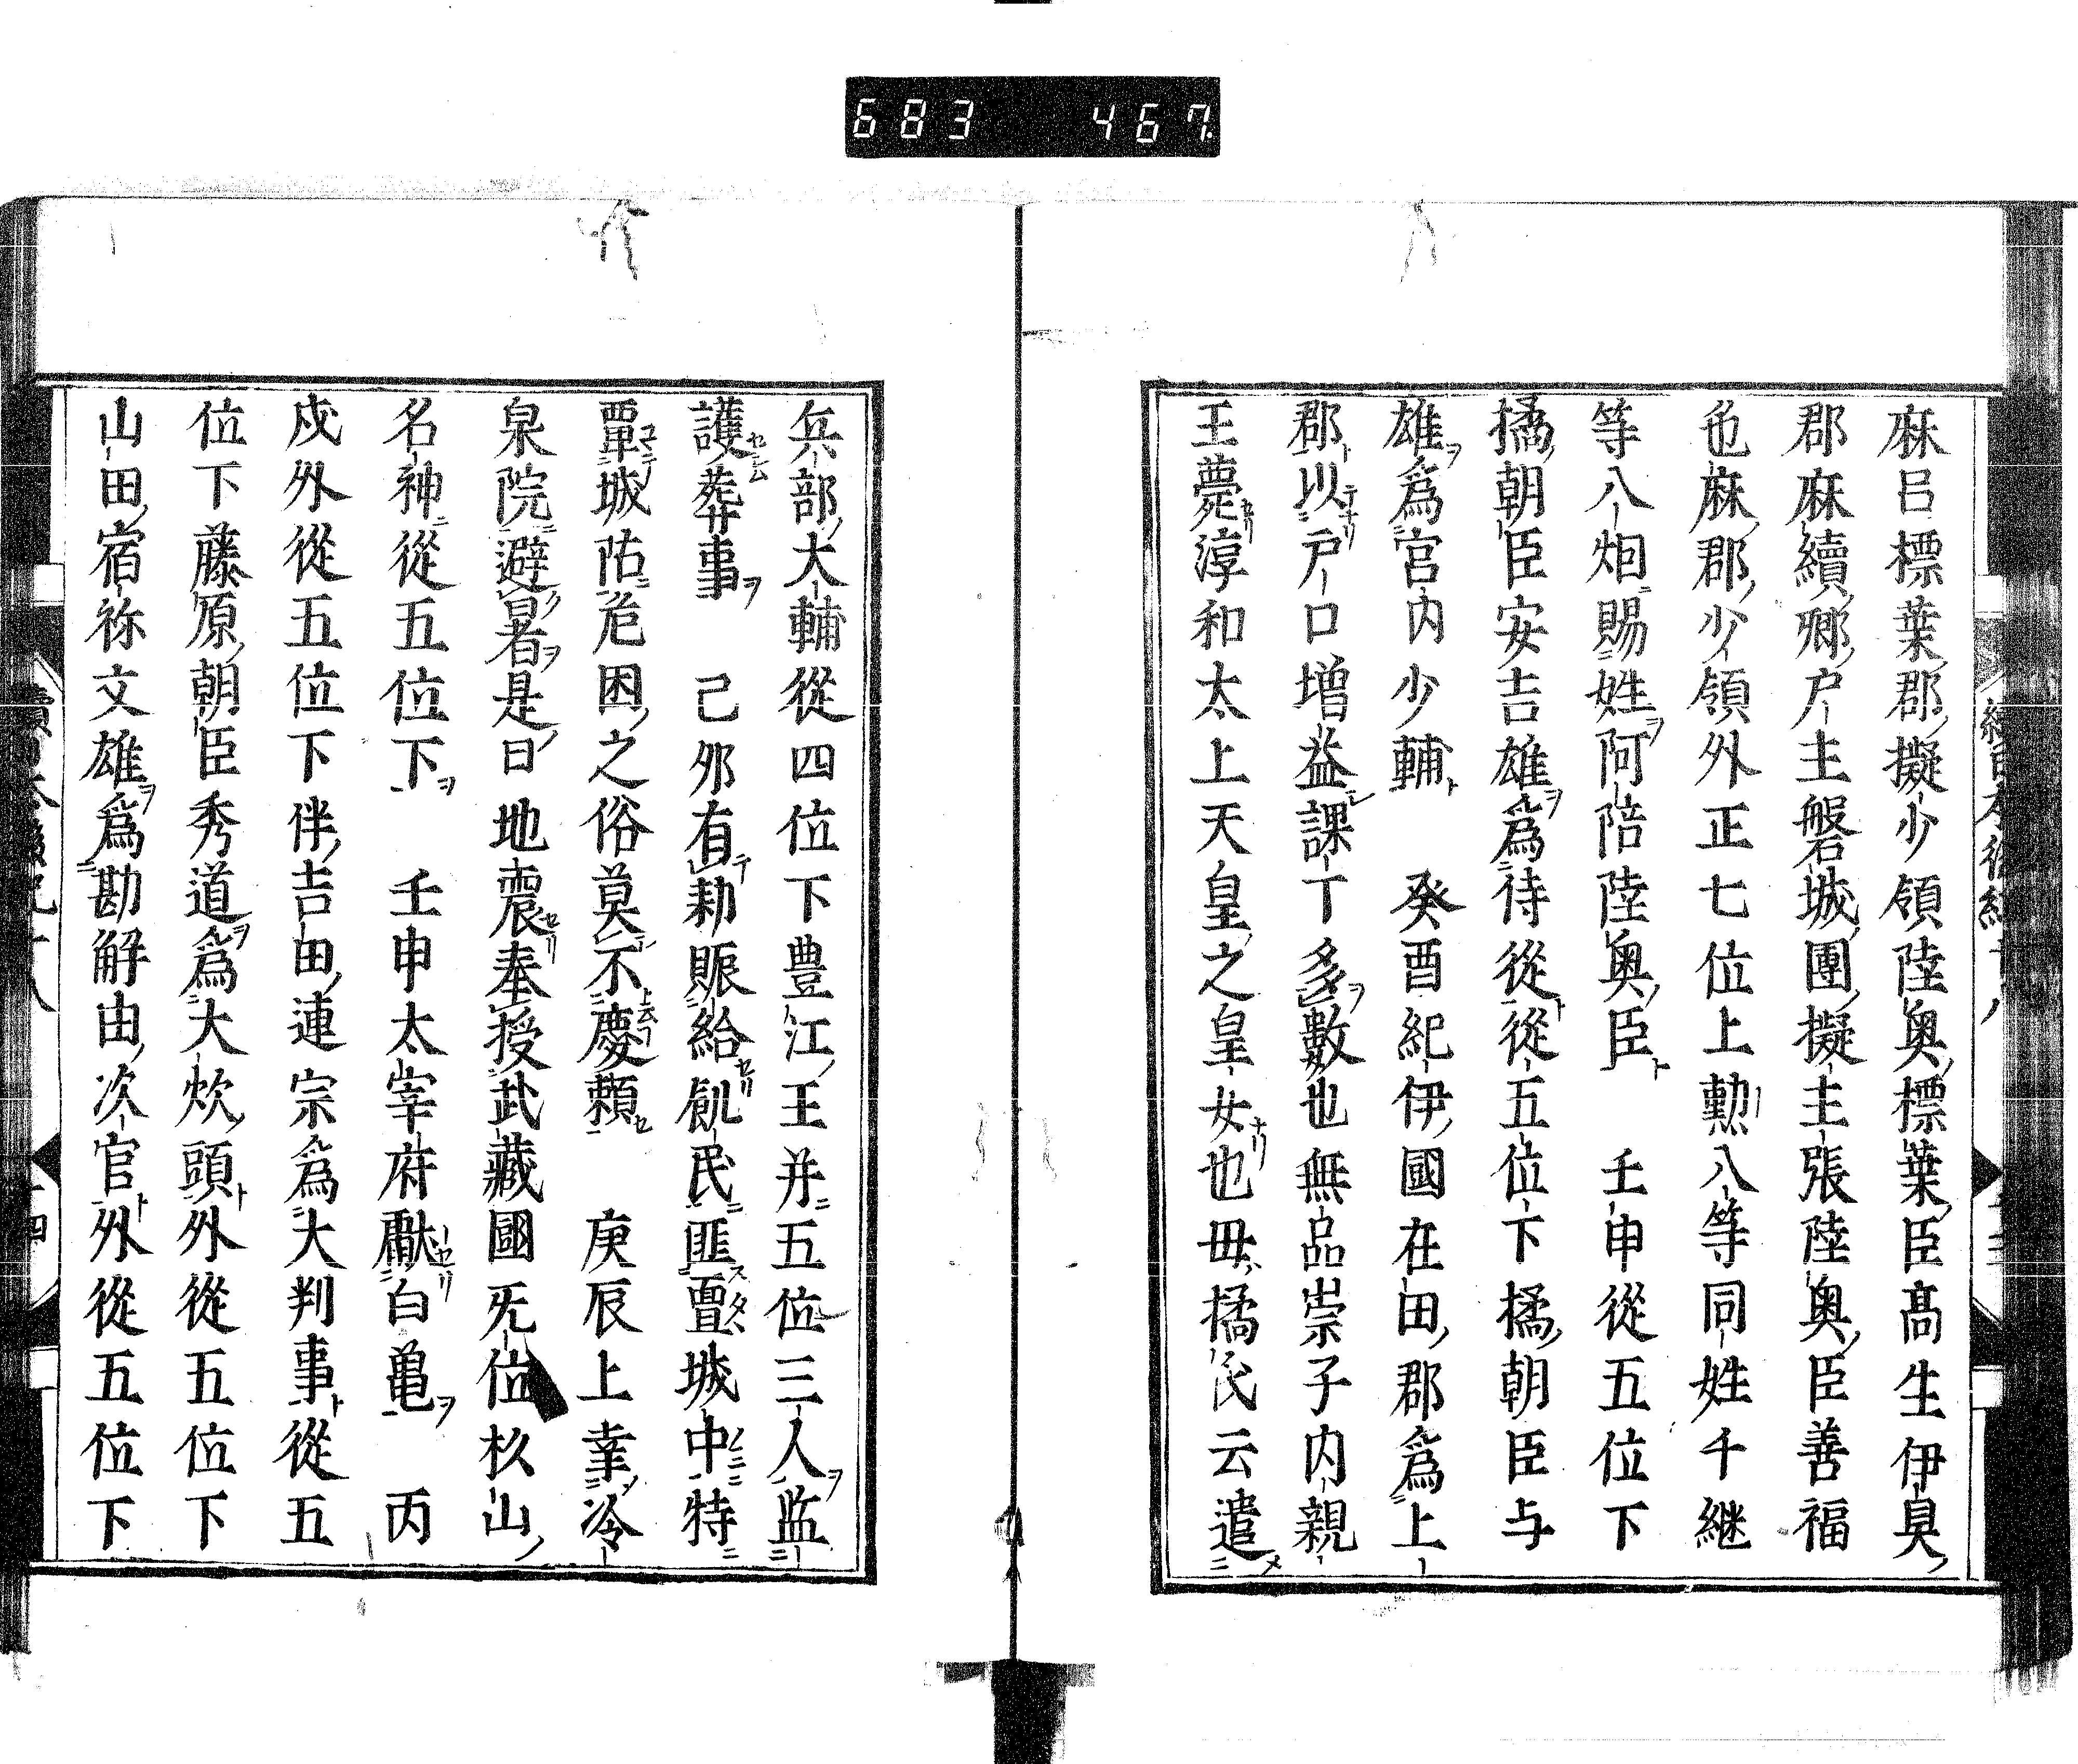 683 467
麻呂標葉郡擬少領陸奥標葉臣髙生伊具
郡麻續郷户主磐城團擬主張陸奥臣善福
色麻郡少領外正七位上勲八等同姓千継
等八烟賜姓阿陪陸奥臣　壬申從五位下
橘朝臣安吉雄爲侍從從五位下橘朝臣与
雄爲宮内少輔　癸酉紀伊國在田郡爲上
郡以戸口増益課丁多數也無品崇子内親
王薨淳和太上天皇之皇女也毋橘氏云遣
兵部大輔從四位下豊江王并五位三人監
護葬事　己夘有勅賑給飢民匪亶城中特
覃城坊危困之俗莫不慶頼　庚辰上幸冷
泉院避暑是日地震奉授武藏國旡位杉山
名神從五位下　壬申太宰府獻白亀　丙
戍外從五位下伴吉田連宗爲大判事從五
位下藤原朝臣秀道爲大炊頭外從五位下
山田宿祢文雄爲勘解由次官外從五位下